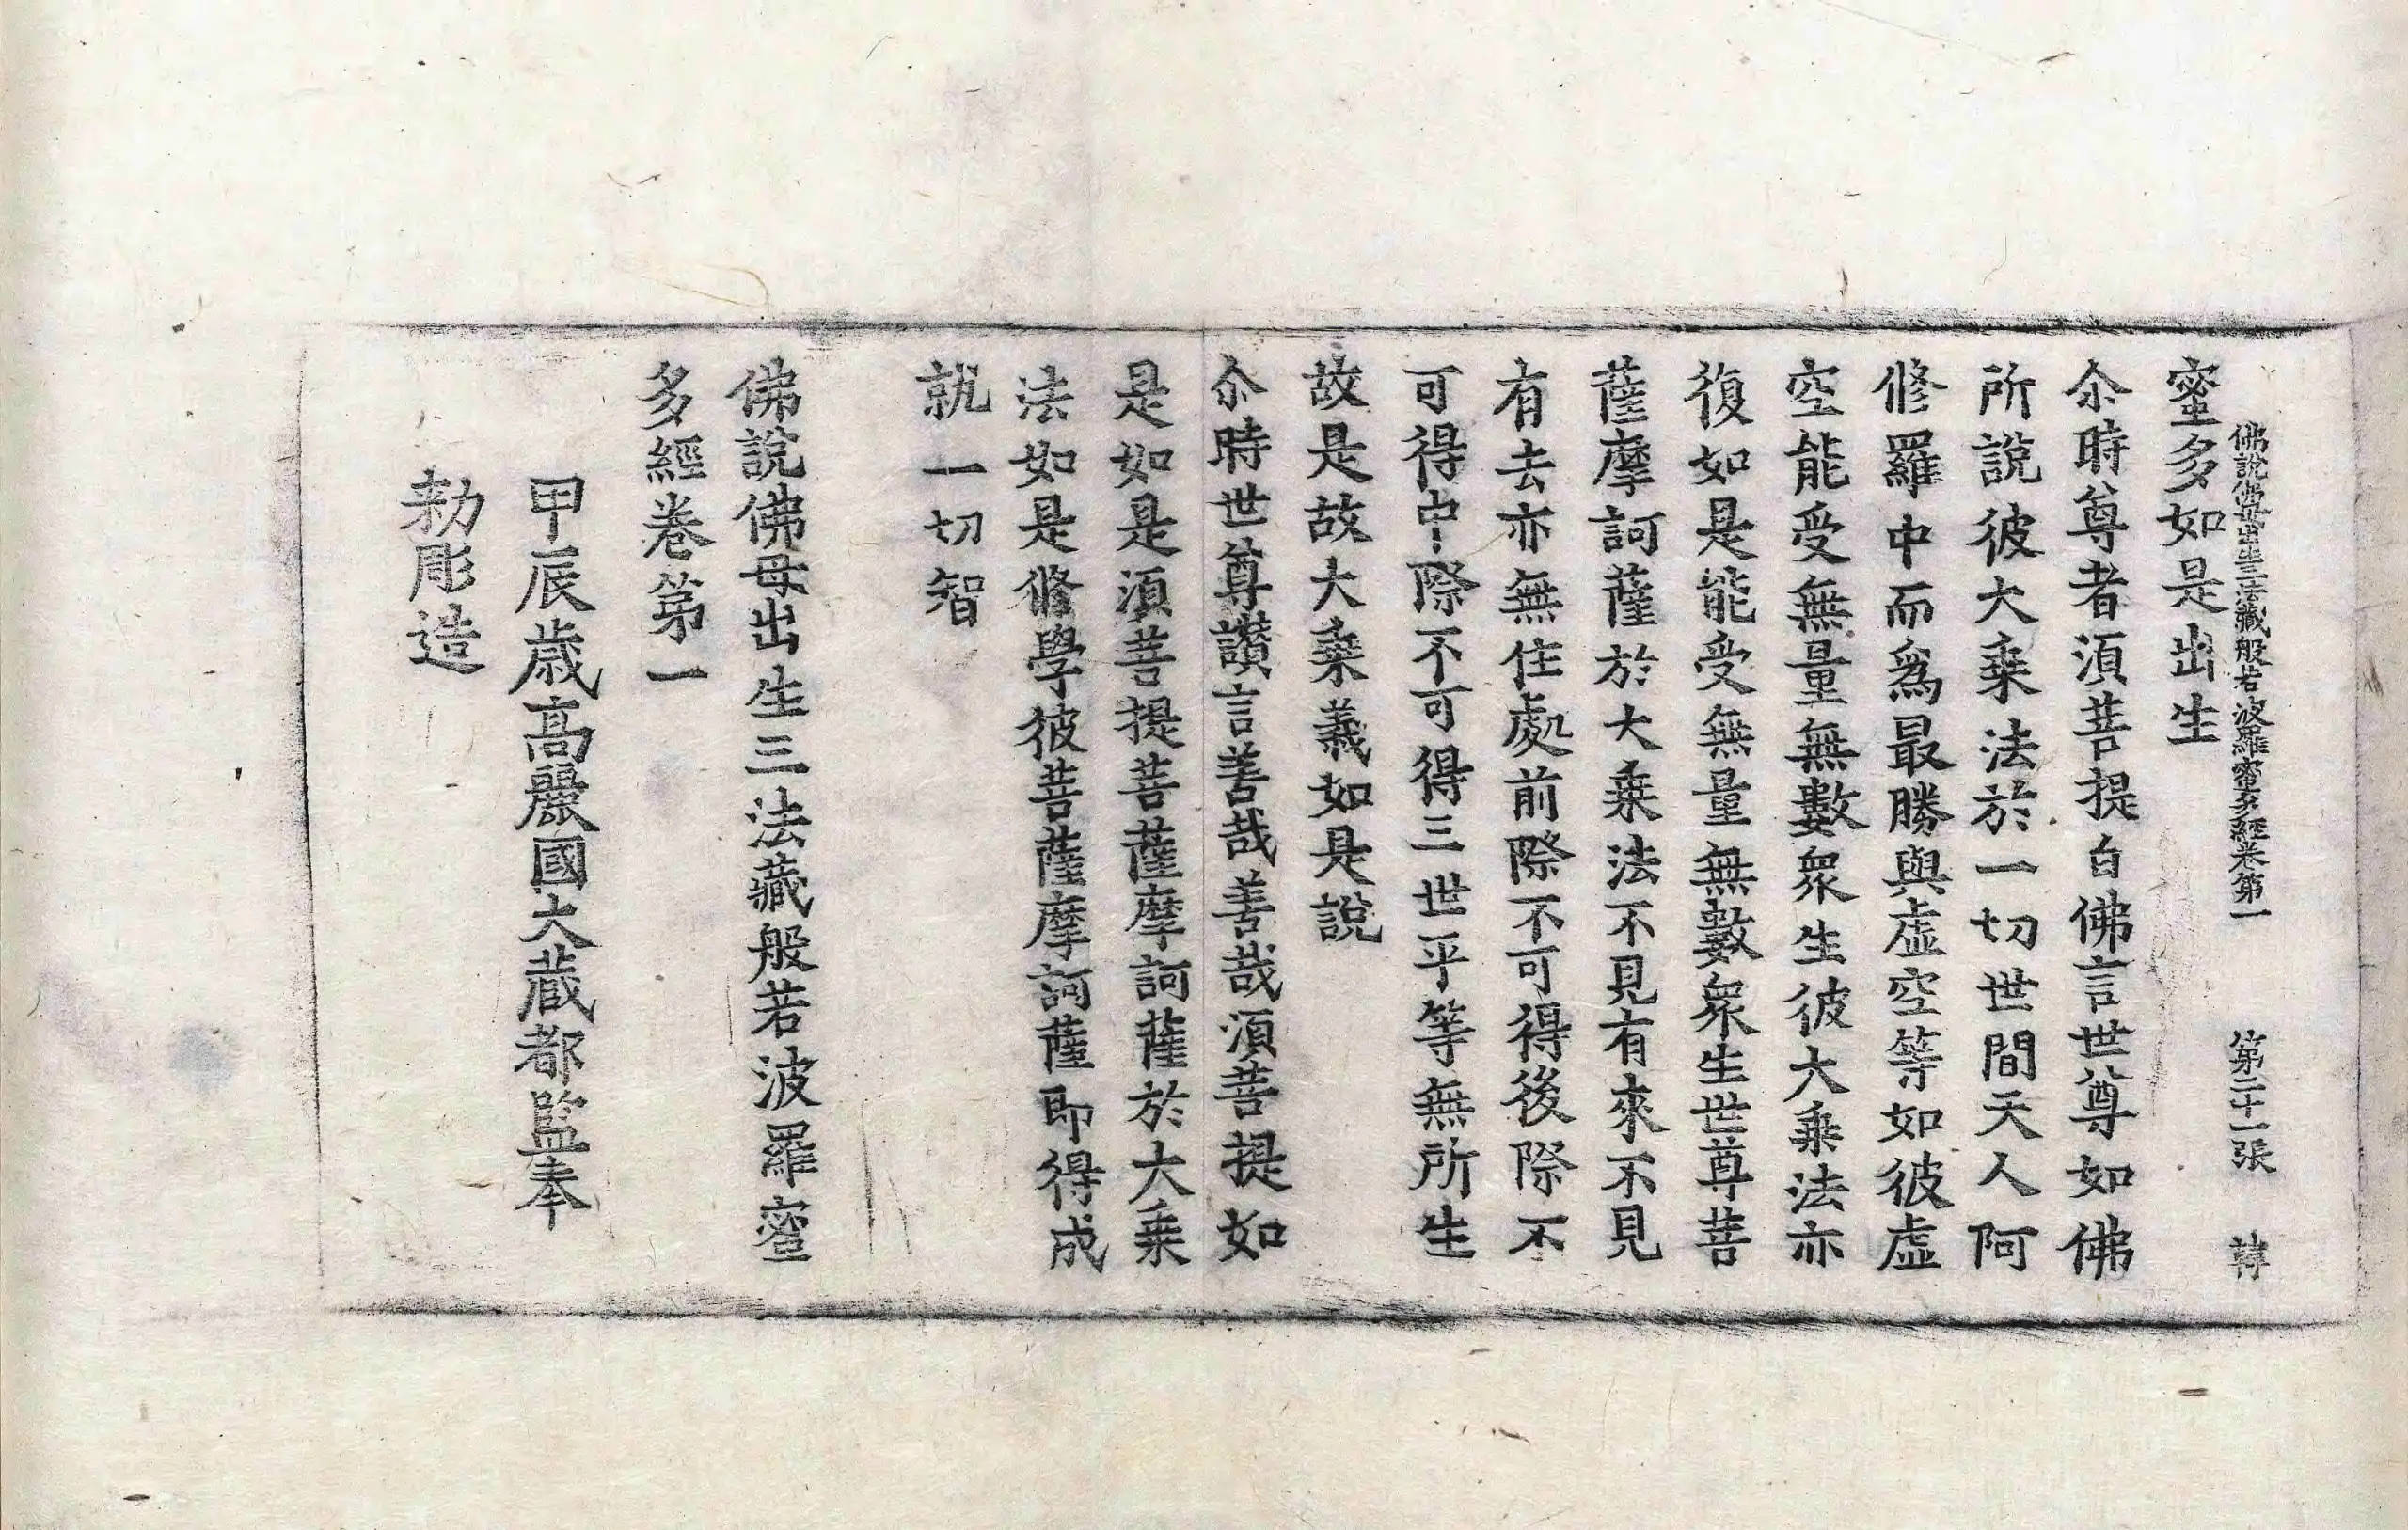 佛說佛母出生三法藏般若波羅蜜多經卷第一 第二十一張 韓
蜜多如是出生
尒時尊者湏菩提白佛言世尊如佛
所說彼大乗法於一切世間天人阿
修羅中而爲最勝與虛空等如彼虛
空能受無量無數衆生彼大乗法亦
復如是能受無量無數衆生世尊菩
薩摩訶薩於大乗法不見有來不見
有去亦無住處前際不可得後際不
可得中際不可得三世平等無所生
故是故大乗義如是說
尒時世尊讃言善哉善哉湏菩提如
是如是湏菩提菩薩摩訶薩於大乗
法如是修學彼菩薩摩訶薩即得成
就一切智
佛說佛母出生三法藏般若波羅蜜
多經卷第一
甲辰歲高麗國大藏都監奉
勑彫造